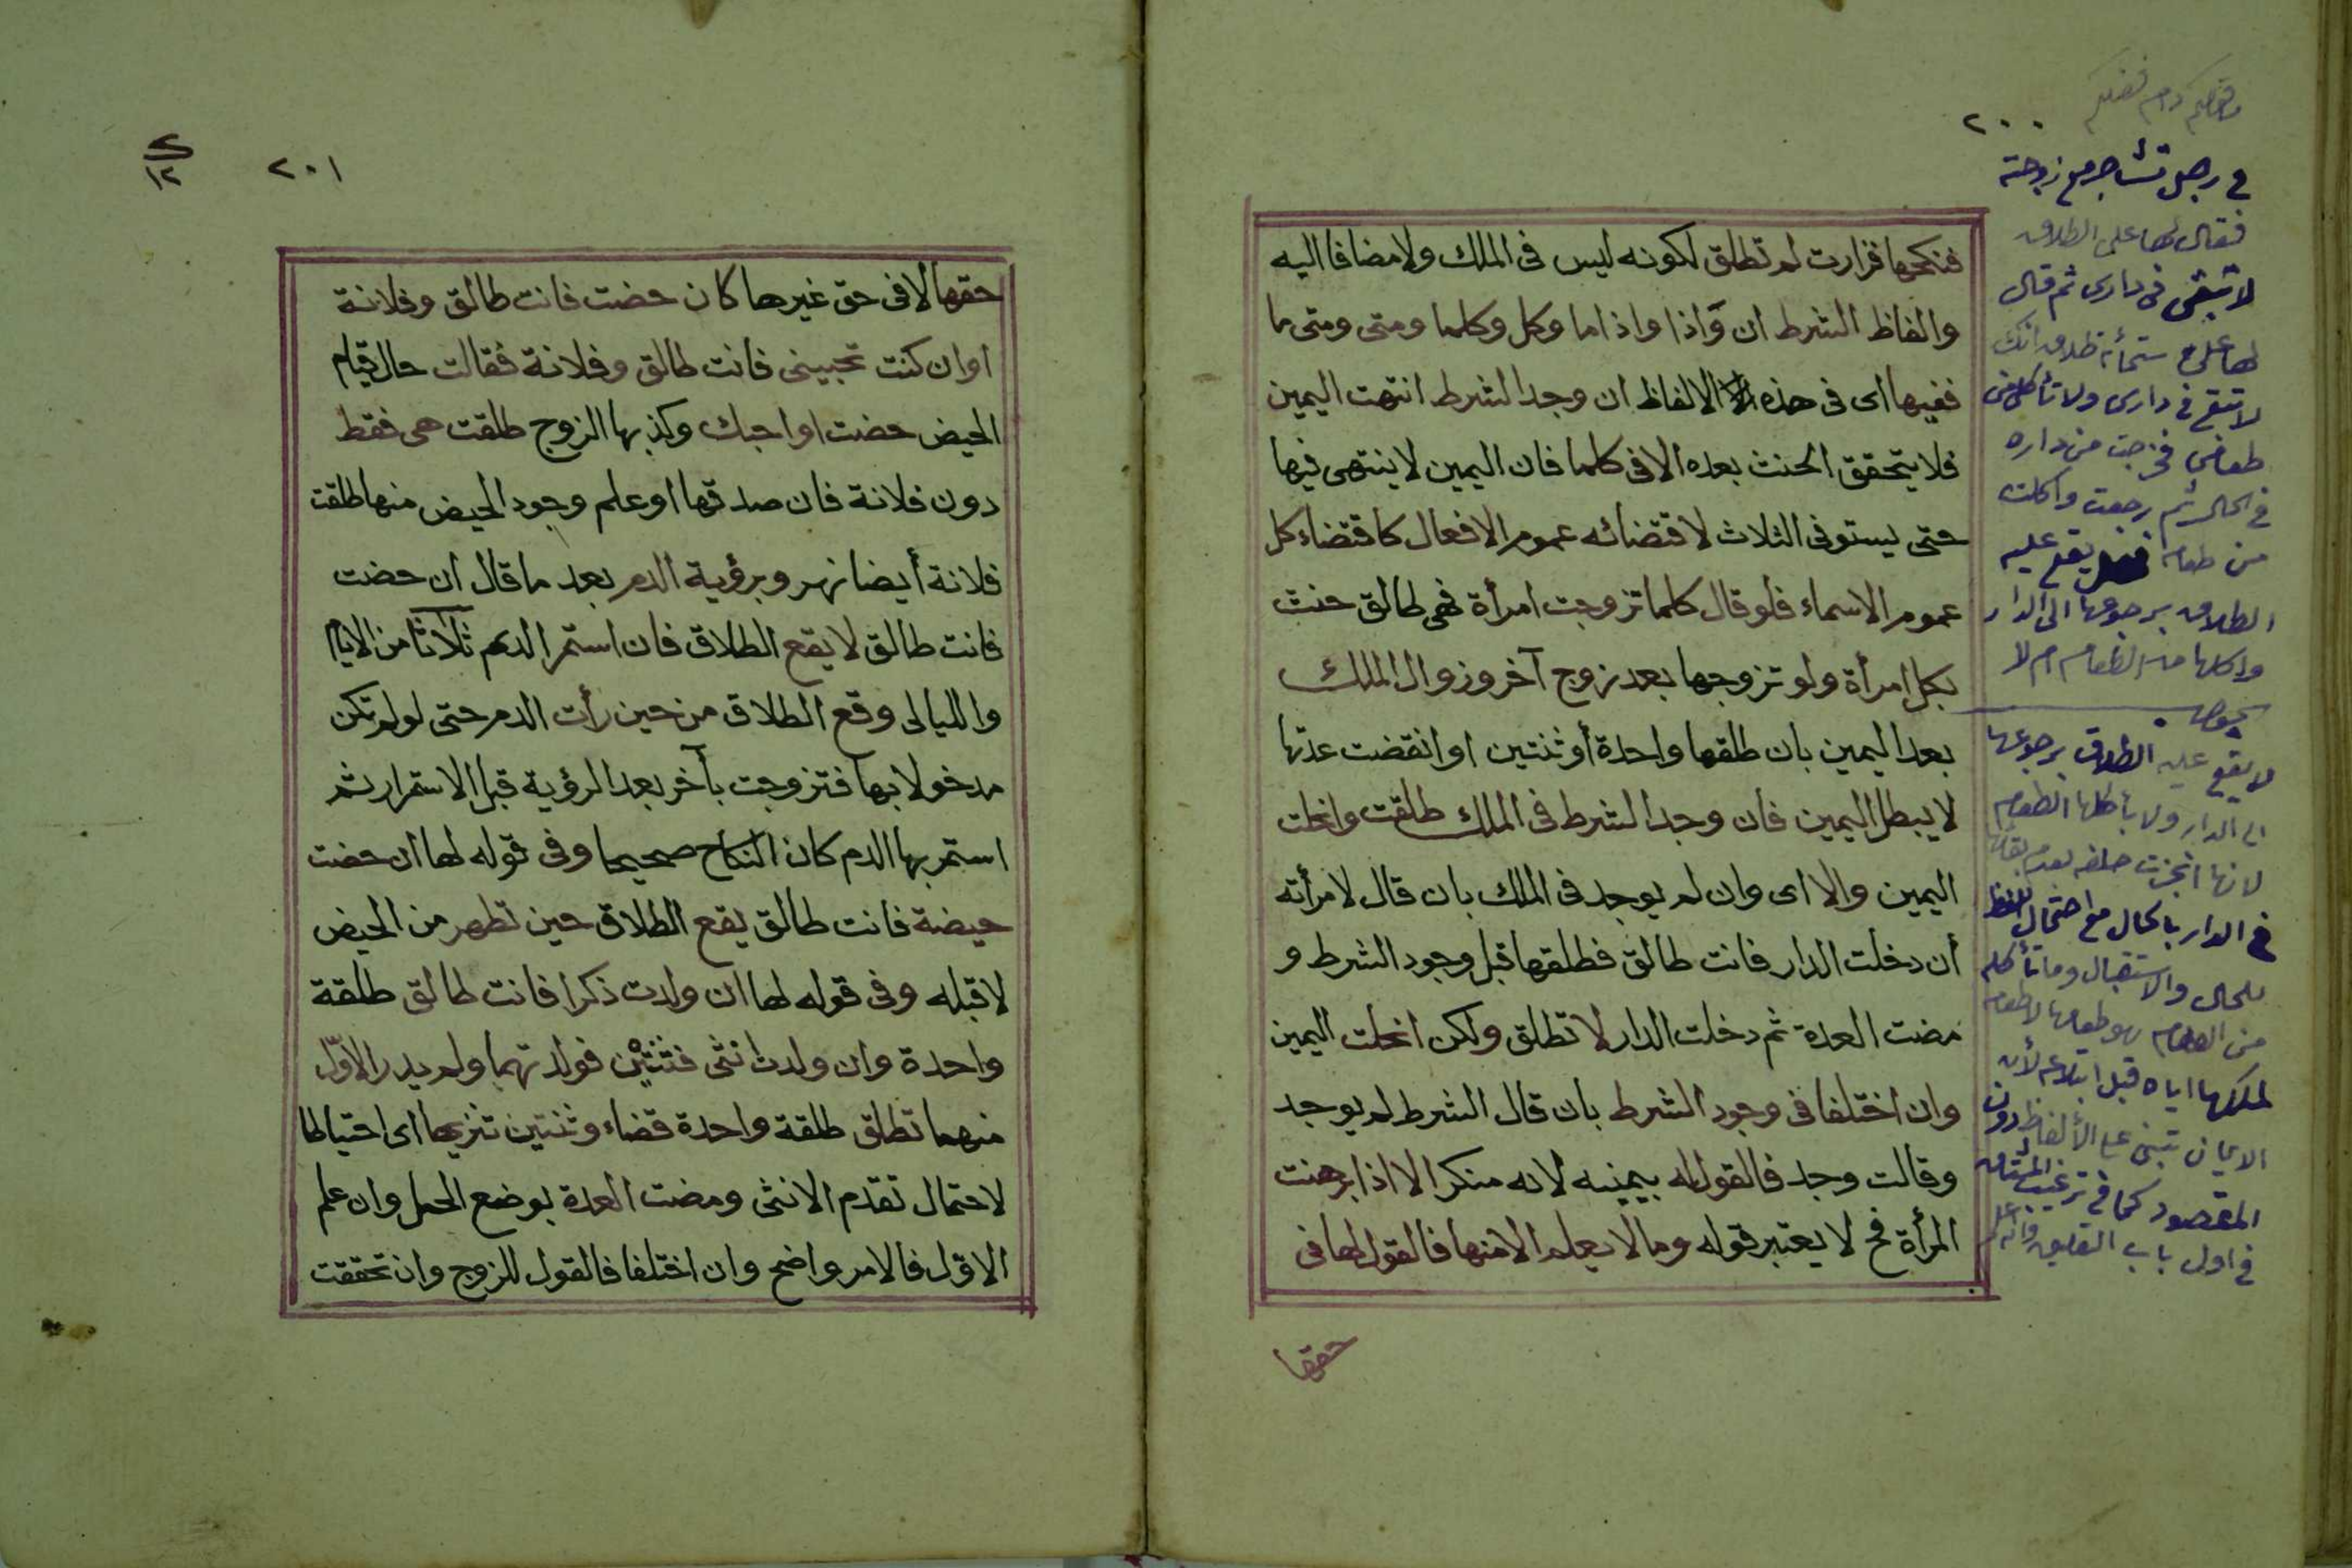 ٢٠٠
فنكحها فزارت لم تطلق لكونه ليس فى الملك ولا مضافا اليه
والفاظ الشرط ان وَاذا واذاما وكل وكلما ومتى ومتى ما
ففيها اى فى هذه الالفاظ ان وجد الشرط انتهت اليمين
فلا يتحقق الحنث بعده الا فى كلما فان اليمين لا ينتهى فيها
حتى يستوفى الثلاث لاقتضائه عموم الافعال كاقتضاء كل
عموم الاسماء فلو قال كلما تزوجت امرأة فهى طالق حنث
بكل امرأة ولو تزوجها بعد زوج آخر وزوال الملك
بعد اليمين بان طلقها واحدة أو ثنتين او انقضت عدتها
لا يبطل اليمين فان وجد الشرط فى الملك طلقت وانحلت
اليمين والا اى وان لم يوجد فى الملك بان قال لامرأته
أن دخلت الدار فانت طالق فطلقها قبل وجود الشرط و
مضت العدة ثم دخلت الدار لا تطلق ولكن انحلت اليمين
وان اختلفا فى وجود الشرط بان قال الشرط لم يوجد
وقالت وجد فالقول له بيمينه لانه منكر الا اذا برهنت
المرأة فح لا يعتبر قوله وما لا يعلم الا منها فالقول لها فى
حقها
فى رجل تشاجر مع زوجته
فقال لها على الطلاق
لا تبقى فى دارى ثم قال
لها على ستمأة طلاق انك
لا تبقى فى دارى ولا تأكلى من
طعامى فخرجت من داره
فى الحال ثم رجعت واكلت
من طعامه فهل يقع عليه
الطلاق برجوعها الى الدار
واكلها من الطعام ام لا
الجواب
لا يقع عليه الطلاق برجوعها
الى الدار ولا باكلها الطعام
لانها انجزت حلفه بعدم بقائها
فى الدار بالحال مع احتمال اللفظ
للحال والاستقبال وما تأكله
من الطعام هو طعامها لا طعامه
لملكها اياه قبل ابتلاعه لأن
الايمان تبنى على الألفاظ دون
المقصود كما فى
فى اول باب التعليق
٢٠١
١٢
حقها لا فى حق غيرها كان حضت فانت طالق وفلانة
او ان كنت تحبينى فانت طالق وفلانة فقالت حال قيام
الحيض حضت او احبك وكذبها الزوج طلقت هى فقط
دون فلانة فان صدقها او علم وجود الحيض منها طلقت
فلانة أيضا نهر وبرؤية الدم بعد ما قال ان حضت
فانت طالق لا يقع الطلاق فان استمر الدم ثلاثا من الايام
والليالى وقع الطلاق من حين رأت الدم حتى لو لم تكن
مدخولا بها فتزوجت بآخر بعد الرؤية قبل الاستمرار ثم
استمر بها الدم كان النكاح صحيحا وفى قوله لها ان حضت
حيضة فانت طالق يقع الطلاق حين تطهر من الحيض
لا قبله وفى قوله لها ان ولدت ذكرا فانت طالق طلقة
واحدة وان ولدت انثى فثنتين فولدتهما ولم يدر الاوّل
منهما تطلق طلقة واحدة قضاء وثنتين تنزيها اى احتياطا
لاحتمال تقدم الانثى ومضت العدة بوضع الحمل وان علم
الاول فالامر واضح وان اختلفا فالقول للزوج وان تحققت